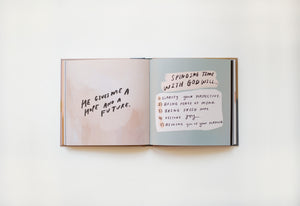 HE GIVES ME A
HOPE AND A
FUTURE.
SPENDING TIME
WITH GOD WILL...
CLARIFY YOUR PERSPECTIVE
BRING PEACE OF MIND
BRING FRESH HOPE
RESTORE JOY
REMIND YOU OF YOUR PURPOSE